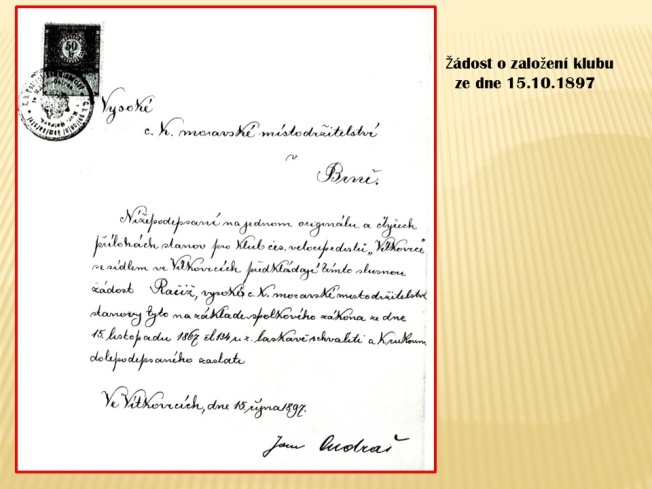 Žádost o založení klubu
ze dne 15.10.1897
50
Vysoké
c. K. moravské místodržitelství
v
Brně.
Nížepodepsaní na jednom originálu a čtyřech
přílohách stanov pro Klub čes. velocipedistů „Vítkovice"
se sídlem ve Vítkovicích předkládají tímto slušnou
žádost Račiž, vysoké c. K. moravské mistodržitelství
stanovy tyto na základě spolkového zákona ze dne
15. listopadu 1867 čl 134 u z. laskavě schváliti a K rukoum
dolepodepsaného zaslati
Ve Vítkovicích, dne 15. října 1897.
Jan Ondraš